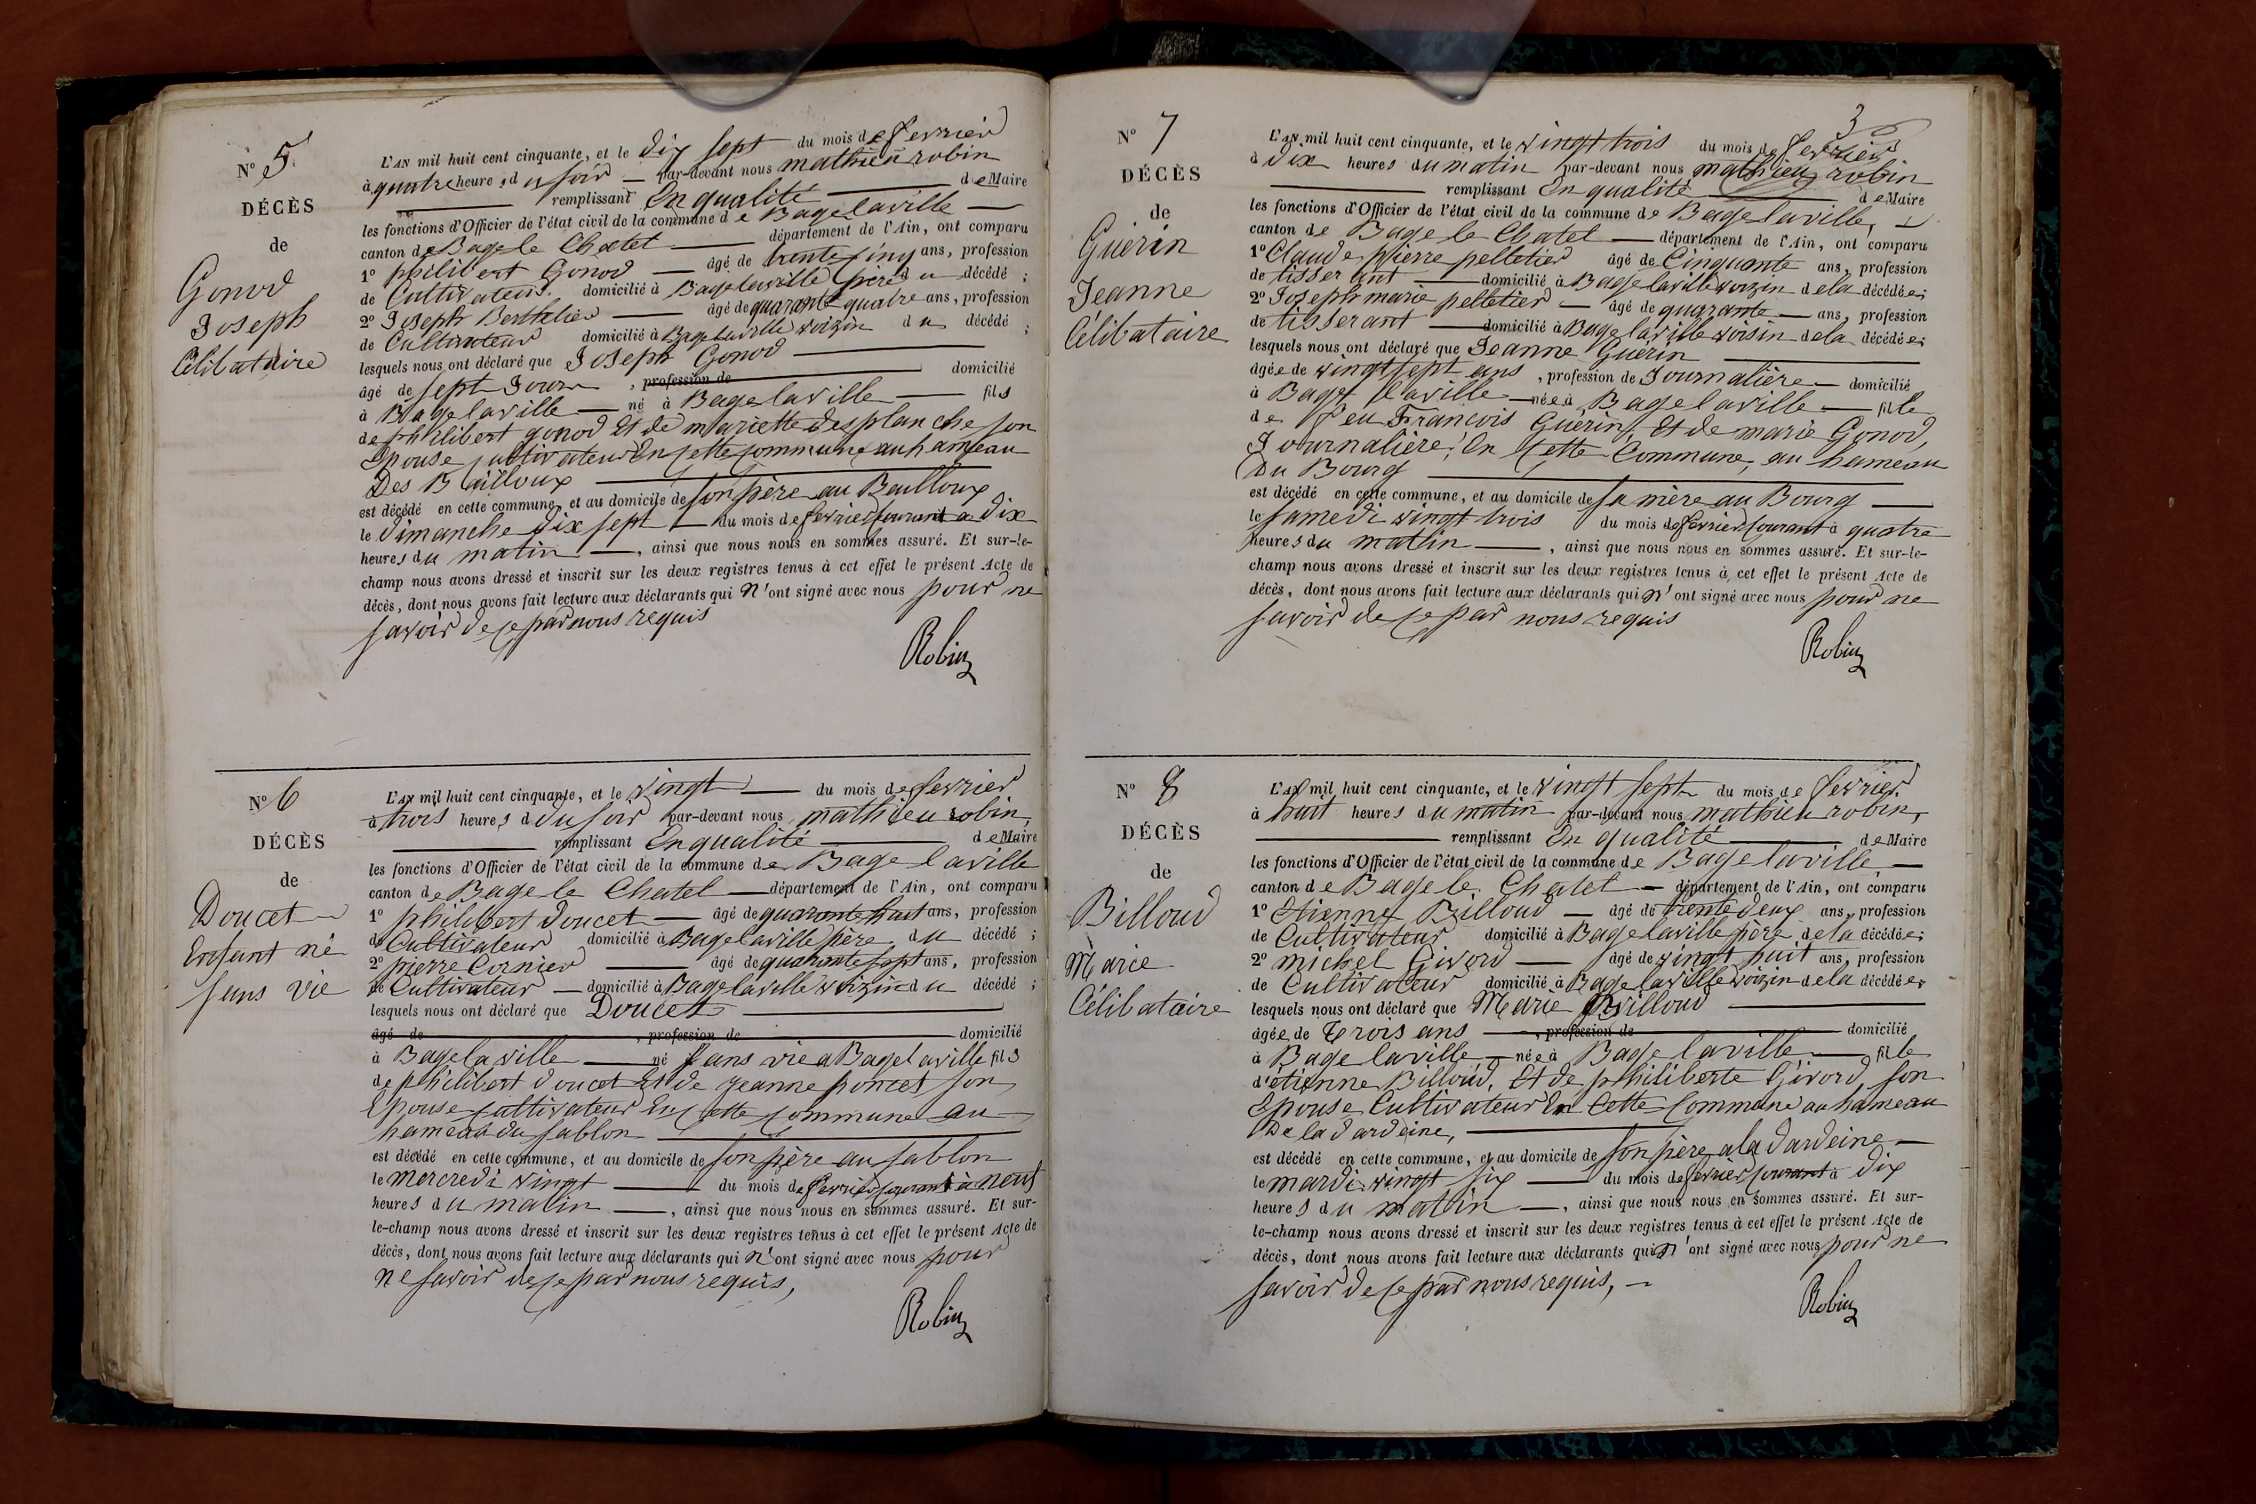 N° 5.
DÉCÈS
de
Gonod
Joseph
Célibataire
L'AN mil huit cent cinquante, et le dix sept du mois de fevrier
à quatre heures du soir — par-devant nous mathieu robin
remplissant En qualité de Maire
les fonctions d'Officier de l'état civil de la commune de Bagelaville
canton de Bage le Chatel département de l'Ain, ont comparu
1° philibert Gonod — âgé de trente cinq ans, profession
de Cultivateur. domicilié à Bagelaville père du décédé ;
2° Joseph Berthelier — âgé de quarante quatre ans, profession
de Cultivateur domicilié à Bagelaville voizin du décédé ;
lesquels nous ont déclaré que Joseph Gonod
âgé de sept Jours , profession de domicilié
à Bagelaville — né à Bagelaville — fils
de philibert gonod Et de mariette desplanche son
Epouse cultivateur En cette commune au hameau
Des Bailloux
est décédé en cette commune, et au domicile de son père au Bailloux
le dimanche dix sept — du mois de fevrier courant à dix
heures du matin —, ainsi que nous nous en sommes assuré. Et sur-le-
champ nous avons dressé et inscrit sur les deux registres tenus à cet effet le présent Acte de
décès, dont nous avons fait lecture aux déclarants qui n'ont signé avec nous pour ne
savoir de ce par nous requis
Robin
N° 6
DÉCÈS
de
Doucet
Enfant né
sans vie
L'AN mil huit cent cinquante, et le vingt — du mois de fevrier
à trois heures d du soir par-devant nous mathieu robin,
remplissant En qualité de Maire
les fonctions d'Officier de l'état civil de la commune de Bage laville
canton de Bage le Chatel — département de l'Ain, ont comparu
1° philibert doucet — âgé de quarante huit ans, profession
de Cultivateur domicilié à Bagelaville père du décédé ;
2° pierre Cornier — âgé de quarante sept ans, profession
de Cultivateur — domicilié à Bagelaville voizin du décédé ;
lesquels nous ont déclaré que Doucet
âgé de , profession de domicilié
à Bagelaville — né sans vie a Bagelaville fils
de philibert doucet Et de jeanne poncet son
Epouse cultivateur En cette commune au
hameau du sablon
est décédé en cette commune, et au domicile de son père au sablon
le mercredi vingt — du mois de fevrier courant à neuf
heures du matin —, ainsi que nous nous en sommes assuré. Et sur-
le-champ nous avons dressé et inscrit sur les deux registres tenus à cet effet le présent Acte de
décès, dont nous avons fait lecture aux déclarants qui n'ont signé avec nous pour
ne savoir de ce par nous requis,
Robin
3
N° 7
DÉCÈS
de
Guérin
Jeanne
Célibataire
L'AN mil huit cent cinquante, et le vingt trois du mois de fevrier
à dix heures du matin par-devant nous mathieu robin
remplissant En qualité de Maire
les fonctions d'Officier de l'état civil de la commune de Bage laville,
canton de Bage le Chatel — département de l'Ain, ont comparu
1° Claude pierre pelletier âgé de Cinquante ans, profession
de tisserant — domicilié à Bagelaville voizin de la décédée ;
2° Joseph marie pelletier — âgé de quarante — ans, profession
de tisserant — domicilié à Bagelaville voisin de la décédée ;
lesquels nous ont déclaré que Jeanne Guérin
âgée de vingt sept ans , profession de Journalière — domicilié
à Bage laville — née à Bage laville — fille
de feu François Guérin, Et de marie Gonod,
Journalière, En Cette Commune, au hameau
Du Bourg
est décédé en cette commune, et au domicile de sa mère au Bourg
le samedi vingt trois du mois de fevrier courant à quatre
heures du matin —, ainsi que nous nous en sommes assuré. Et sur-le-
champ nous avons dressé et inscrit sur les deux registres tenus à cet effet le présent Acte de
décès, dont nous avons fait lecture aux déclarants qui n'ont signé avec nous pour ne
savoir de ce par nous requis
Robin
N° 8
DÉCÈS
de
Billoud
Marie
Célibataire
L'AN mil huit cent cinquante, et le vingt sept du mois de fevrier
à huit heures du matin par-devant nous mathieu robin,
remplissant En qualité de Maire
les fonctions d'Officier de l'état civil de la commune de Bagelaville,
canton de Bage le Chatel — département de l'Ain, ont comparu
1° Etienne Billoud — âgé de trente deux ans, profession
de Cultivateur domicilié à Bagelaville père de la décédée ;
2° michel Givord — âgé de vingt huit ans, profession
de Cultivateur domicilié à Bagelaville voizin de la décédée ;
lesquels nous ont déclaré que Marie Billoud
âgée de trois ans , profession de domicilié
à Bage laville — née à Bage laville — fille
d'etienne Billoud, Et de philiberte Givord, son
Epouse Cultivateur En Cette Commune au hameau
De la dardeine,
est décédé en cette commune, et au domicile de son père a la dardeine —
le mardi vingt six — du mois de fevrier courant à dix
heures du matin —, ainsi que nous nous en sommes assuré. Et sur-
le-champ nous avons dressé et inscrit sur les deux registres tenus à cet effet le présent Acte de
décès, dont nous avons fait lecture aux déclarants qui n'ont signé avec nous pour ne
savoir de ce par nous requis, —
Robin